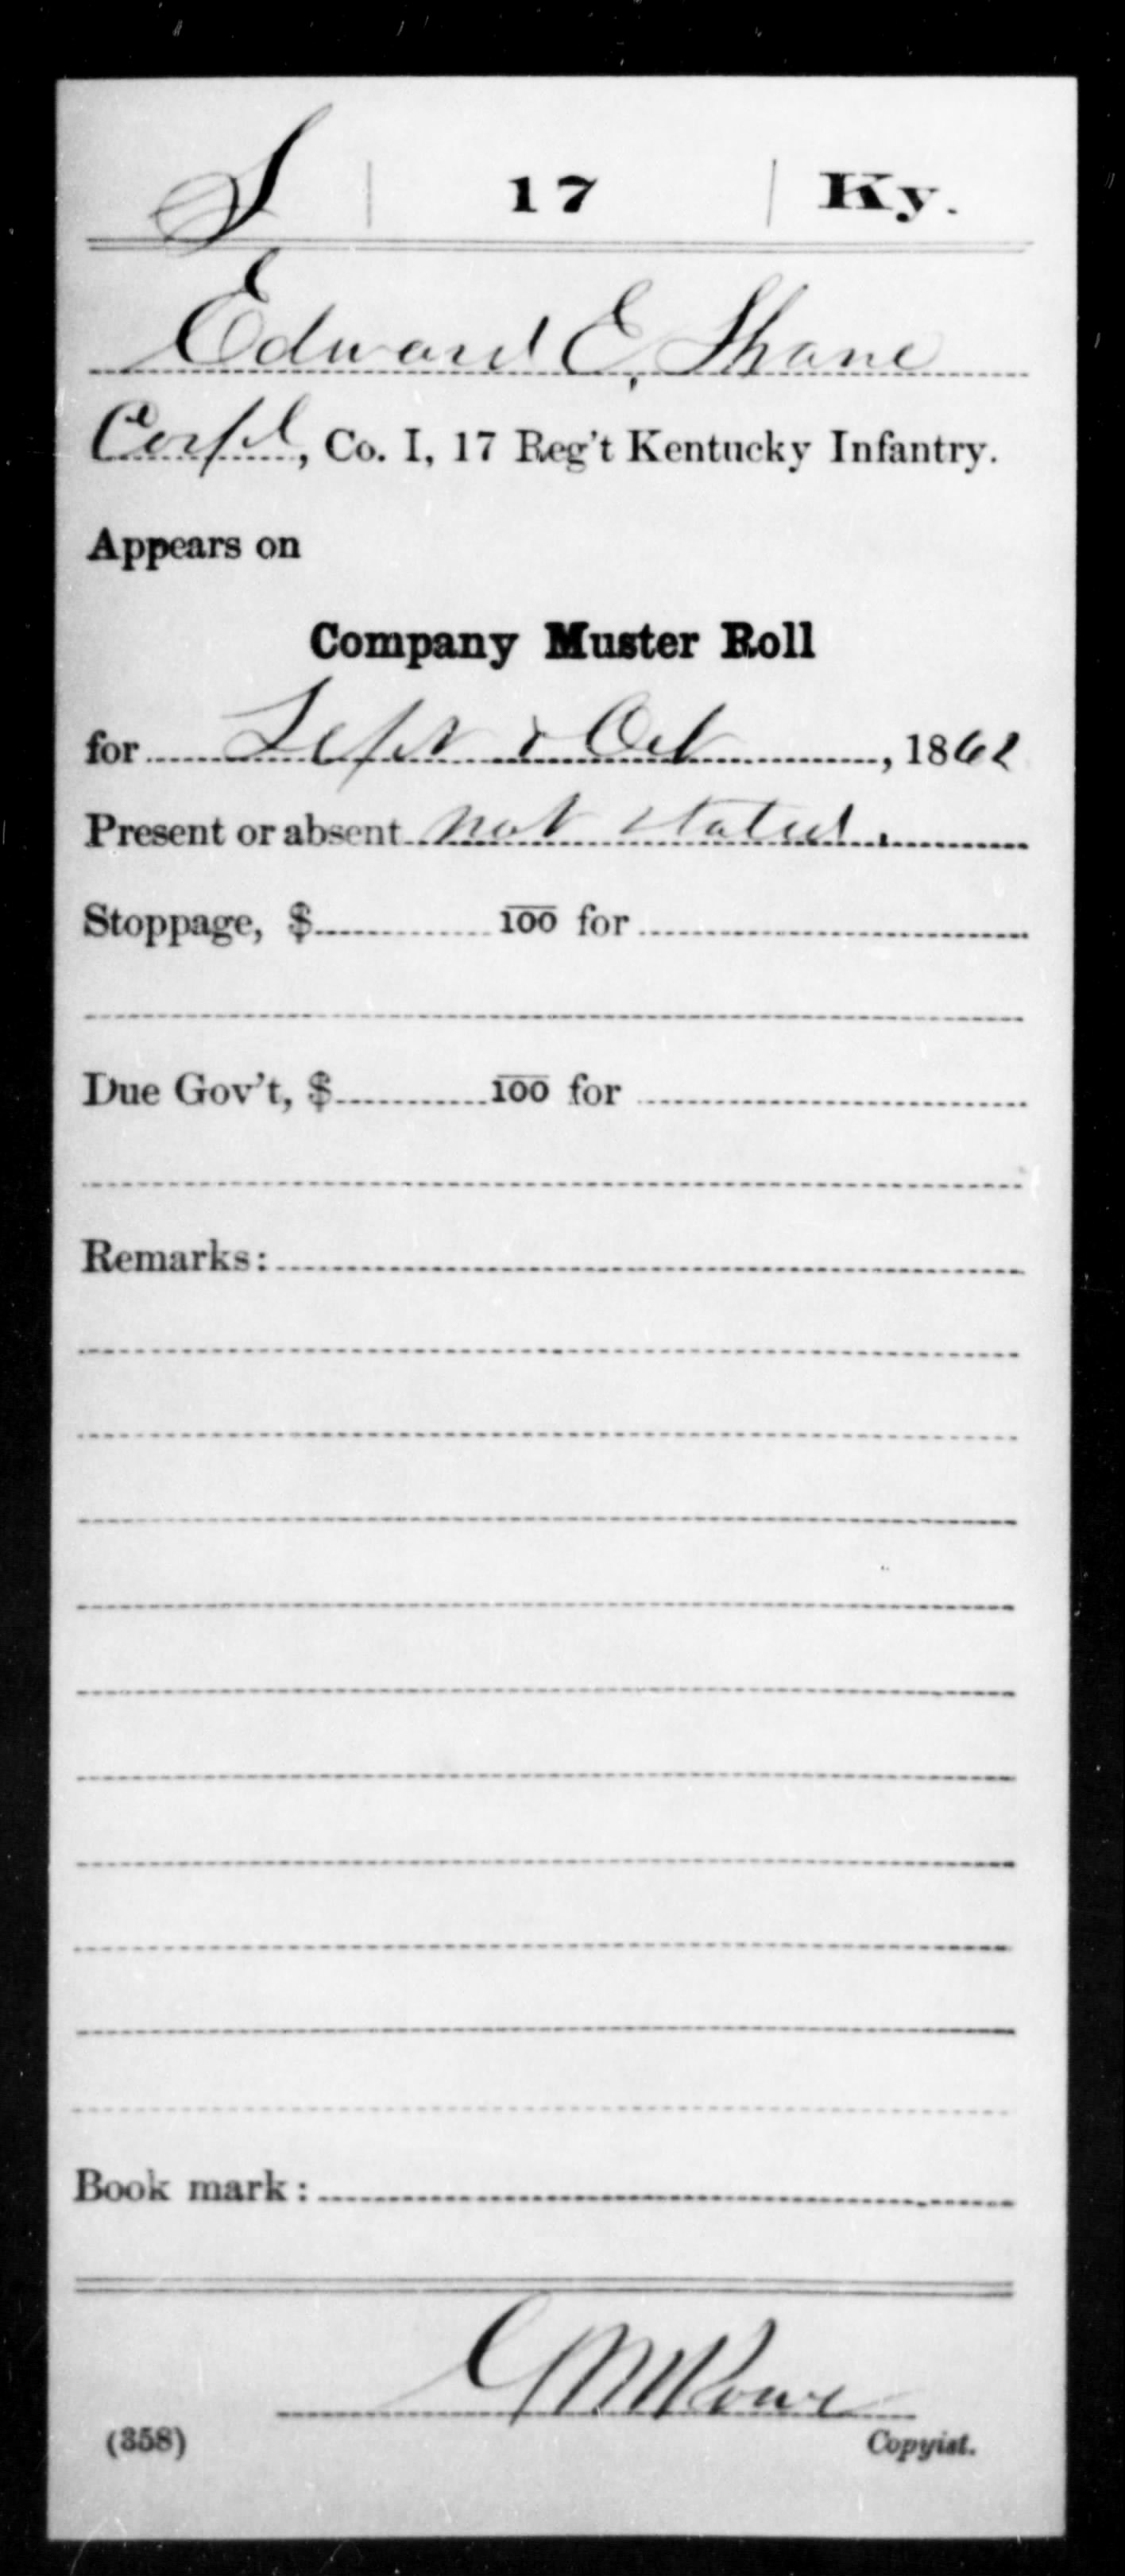 S | 17 | Ky.
Edward E. Shane
Corpl, Co. I, 17 Reg't Kentucky Infantry.
Appears on
Company Muster Roll
for Sept & Oct, 1862
Present or absent not stated.
Stoppage, $ 100 for
Due Gov't, $ 100 for
Remarks:
Book mark:
G M Rowe
(358) Copyist.